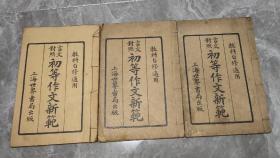 教科自修適用
言文對照 初等作文新範
上海世界書局出版
教科自修適用
言文對照 初等作文新範
上海世界書局出版
教科自修適用
言文對照 初等作文新範
上海世界書局出版